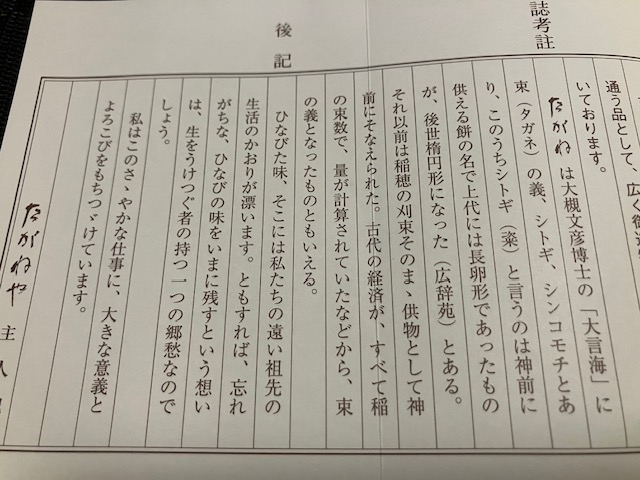 誌考註
通う品として、広く
いております。
たがねは大槻文彦博士の「大言海」に
束（タガネ）の義、シトギ、シンコモチとあ
り、このうちシトギ（粢）と言うのは神前に
供える餅の名で上代には長卵形であったもの
が、後世楕円形になった（広辞苑）とある。
それ以前は稲穂の刈束そのまゝ供物として神
前にそなえられた。古代の経済が、すべて稲
の束数で、量が計算されていたなどから、束
の義となったものともいえる。
後記
ひなびた味、そこには私たちの遠い祖先の
生活のかおりが漂います。ともすれば、忘れ
がちな、ひなびの味をいまに残すという想い
は、生をうけつぐ者の持つ一つの郷愁なので
しょう。
私はこのさゝやかな仕事に、大きな意義と
よろこびをもちつゞけています。
たがねや 主人